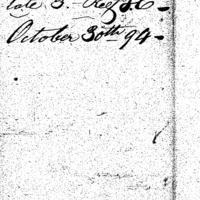 late 3. Reg
October 30th 94-